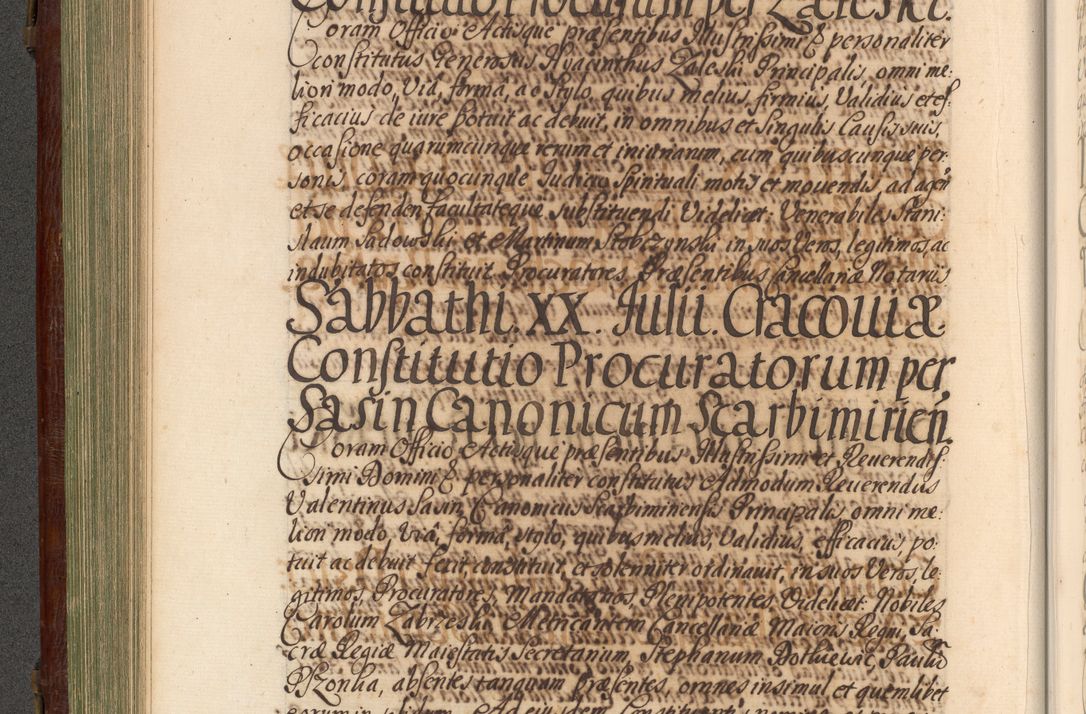 Constitutio Procuratorum per Zaleski.
Coram Officio Actisque præsentibus Illustrissimi &c personaliter
constitutus Generosus Hyacinthus Zaleski Principalis, omni me-
liori modo, Via, forma, ac stylo, quibus melius, firmius, Validius et ef-
ficacius de iure potuit ac debuit, in omnibus et singulis Causis suis,
occasione quarumcunque rerum et iniuriarum, cum quibuscunque per-
sonis coram quocunque Judicio Spirituali motis et mouendis, ad agen
et se defenden facultateque substituendi Videlicet: Venerabiles Stani-
slaum Sadowski et Martinum Stobczynski in suos Veros, legitimos, ac
indubitatos constituit Procuratores, Præsentibus Cancellariæ Notariis
Sabbathi. XX. Julii. Cracouiæ
Constitutio Procuratorum per
Sasin Canonicum Scarbimirien.
Coram Officio Actisque præsentibus Illustrissimi et Reuerendis-
simi Domini &c personaliter constitutus Admodum Reuerendus
Valentinus Sasin Canonicus Scarbimiriensis Principalis omni me-
liori modo, Via, forma, stylo, quibus melius, Validius, efficacius, po-
tuit ac debuit fecit, constituit, et solenniter ordinauit, in suos Veros, le-
gitimos, Procuratores, Mandatarios, Plenipotentes, Videlicet: Nobiles
Carolum Zabrzeski Metricantem Cancellariæ Maioris Regni, Sa-
cræ Regiæ Maiestatis Secretarium Stephanum Paulū
absentes tanquam præsentes, omnes insimul et quemlibet
eorum in solidum Ad eiusdem Constituentis nomine